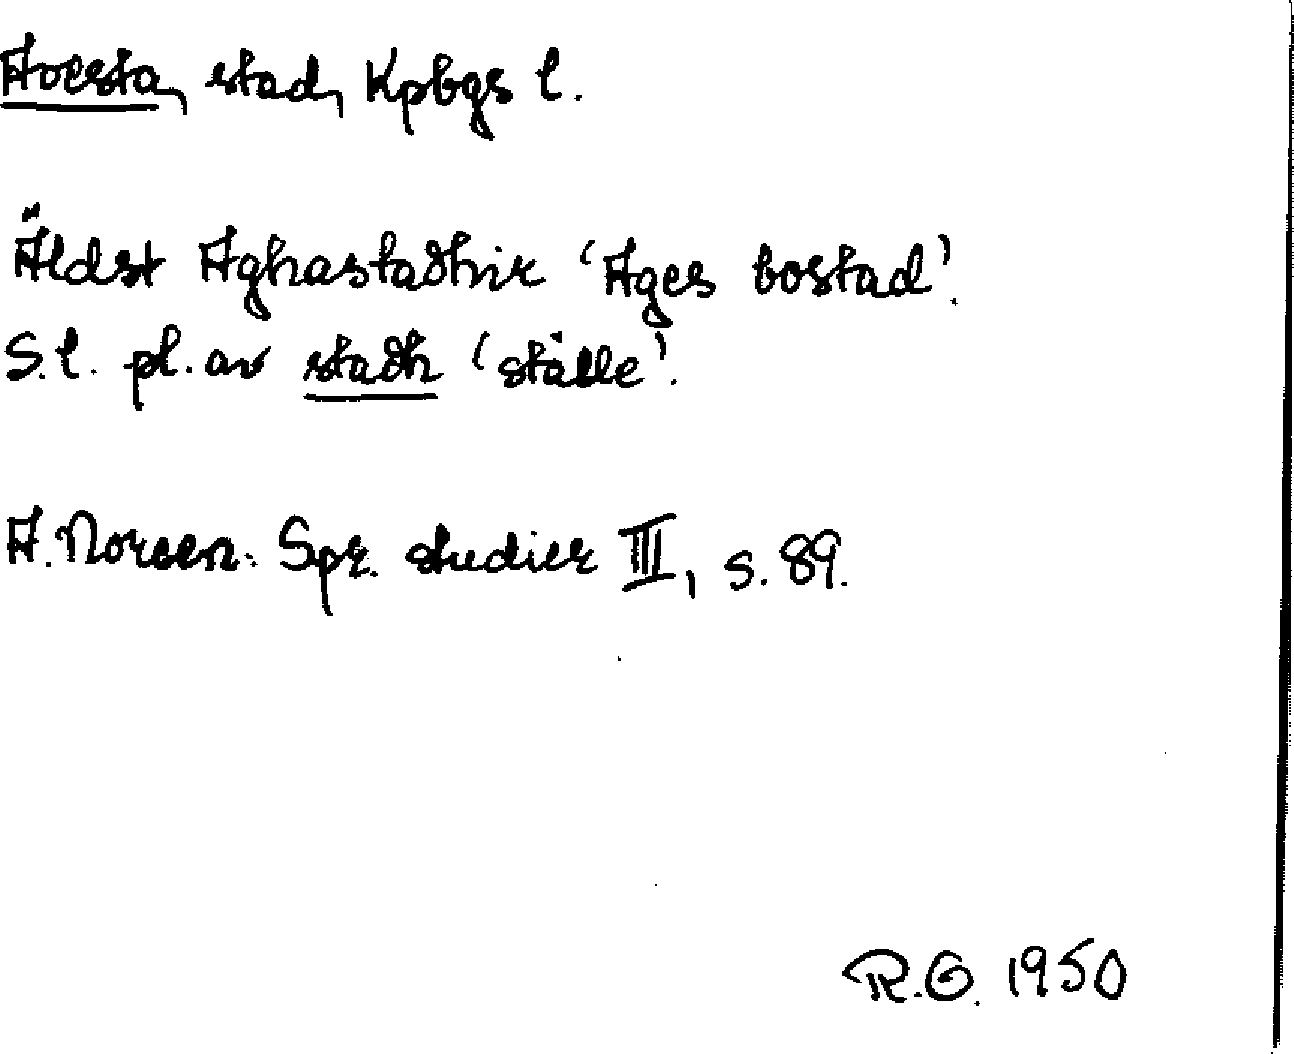 Avesta, stad, Kpbgs l.
Äldst Aghastadhir 'Ages bostad'.
S.l. pl. av stadh 'ställe'.
A. Noreen: Spr. studier III, s. 89.
R.G. 1950